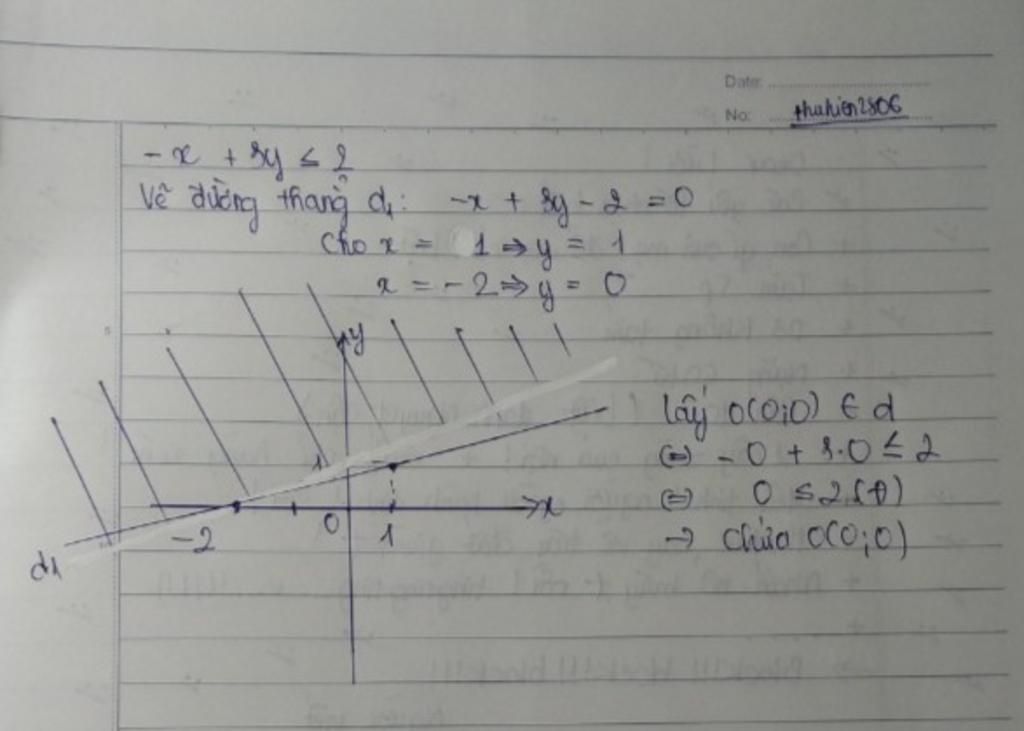 Date:
No: thuhien2806
-x + 3y ≤ 2
Vẽ đường thẳng d1: -x + 3y - 2 = 0
Cho x = 1 ⇒ y = 1
x = -2 ⇒ y = 0
y
lấy O(0;0) ∈ d
1
⇔ -0 + 3.0 ≤ 2
x
⇔ 0 ≤ 2 (t)
-2 0 1
→ chứa O(0;0)
d1